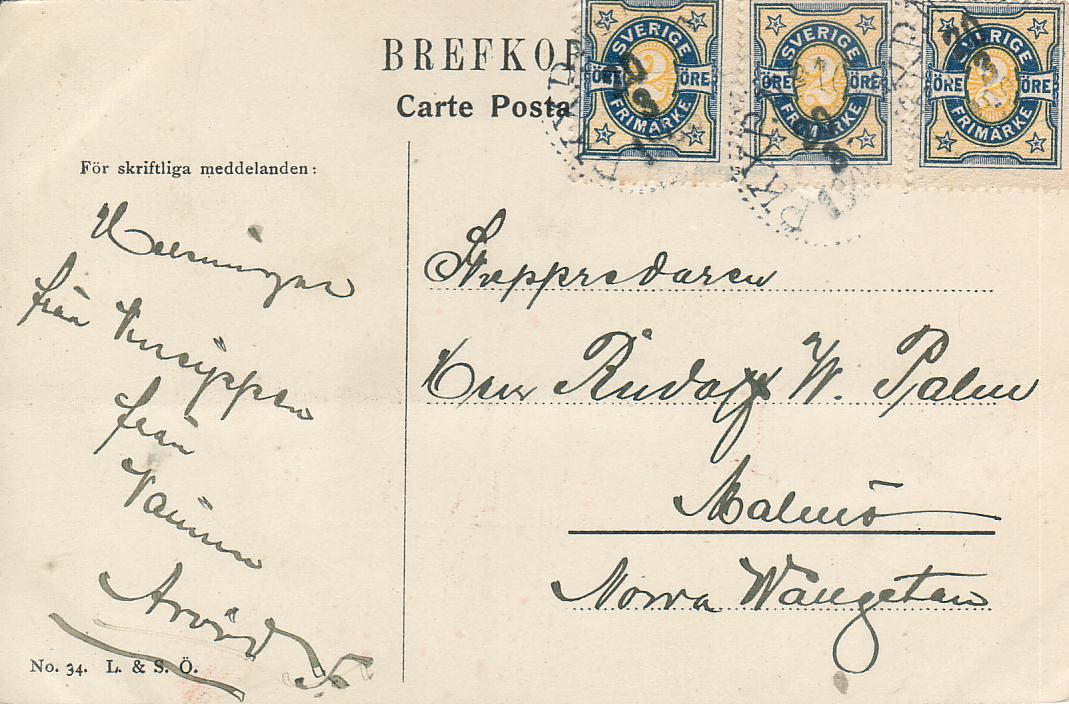 BREFKOR
Carte Posta
SVERIGE
ÖRE 2 ÖRE
FRIMÄRKE
SVERIGE
ÖRE 2 ÖRE
FRIMÄRKE
SVERIGE
ÖRE 2 ÖRE
FRIMÄRKE
PKXP
20
3
För skriftliga meddelanden:
Helsningar
från
från
Vännen
Arvid
No. 34. L. & S. Ö.
Skeppredaren
Herr Rudolf W. Palm
Malmö
Norra Wallgatan